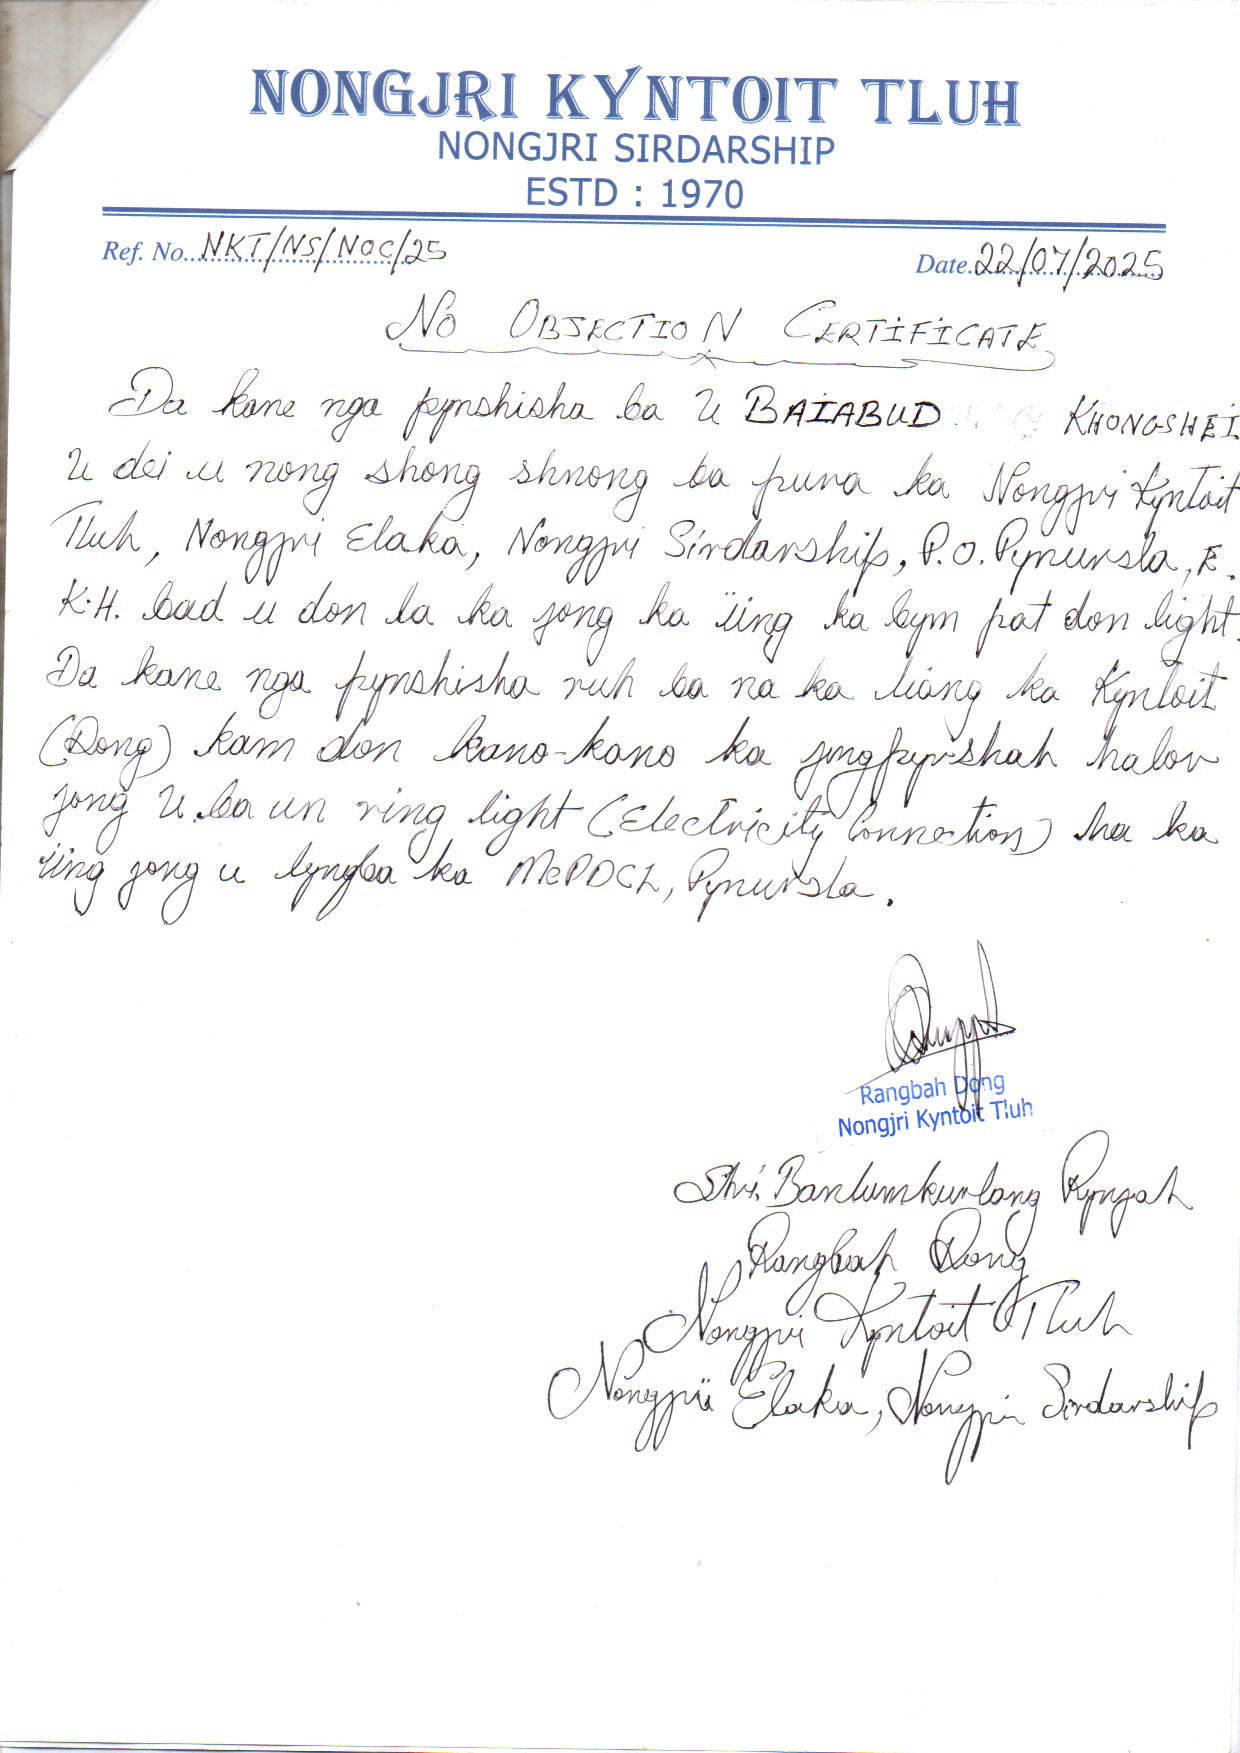 NONGJRI KYNTOIT TLUH
NONGJRI SIRDARSHIP
ESTD : 1970
Ref. No. NKT/NS/NOC/25 Date. 22/07/2025
NO OBJECTION CERTIFICATE
Da kane nga pynshisha ba U BAIABUD KHONGSHEI
U dei u nong shong shnong ba pura ka Nongjri Kyntoit
Tluh, Nongjri Elaka, Nongjri Sirdarship, P.O. Pynursla, E.
K.H. bad u don la ka jong ka ïing ka bym pat don light.
Da kane nga pynshisha ruh ba na ka liang ka Kyntoit
(Dong) kam don kano-kano ka jingpyrshah halor
jong U ba un ring light (Electricity Connection) ha ka
ïing jong u lyngba ka MePDCL, Pynursla.
Rangbah Dong
Nongjri Kyntoit Tluh
Shri. Banlumkurlang Rynjah
Rangbah Dong
Nongjri Kyntoit Tluh
Nongjri Elaka, Nongjri Sirdarship